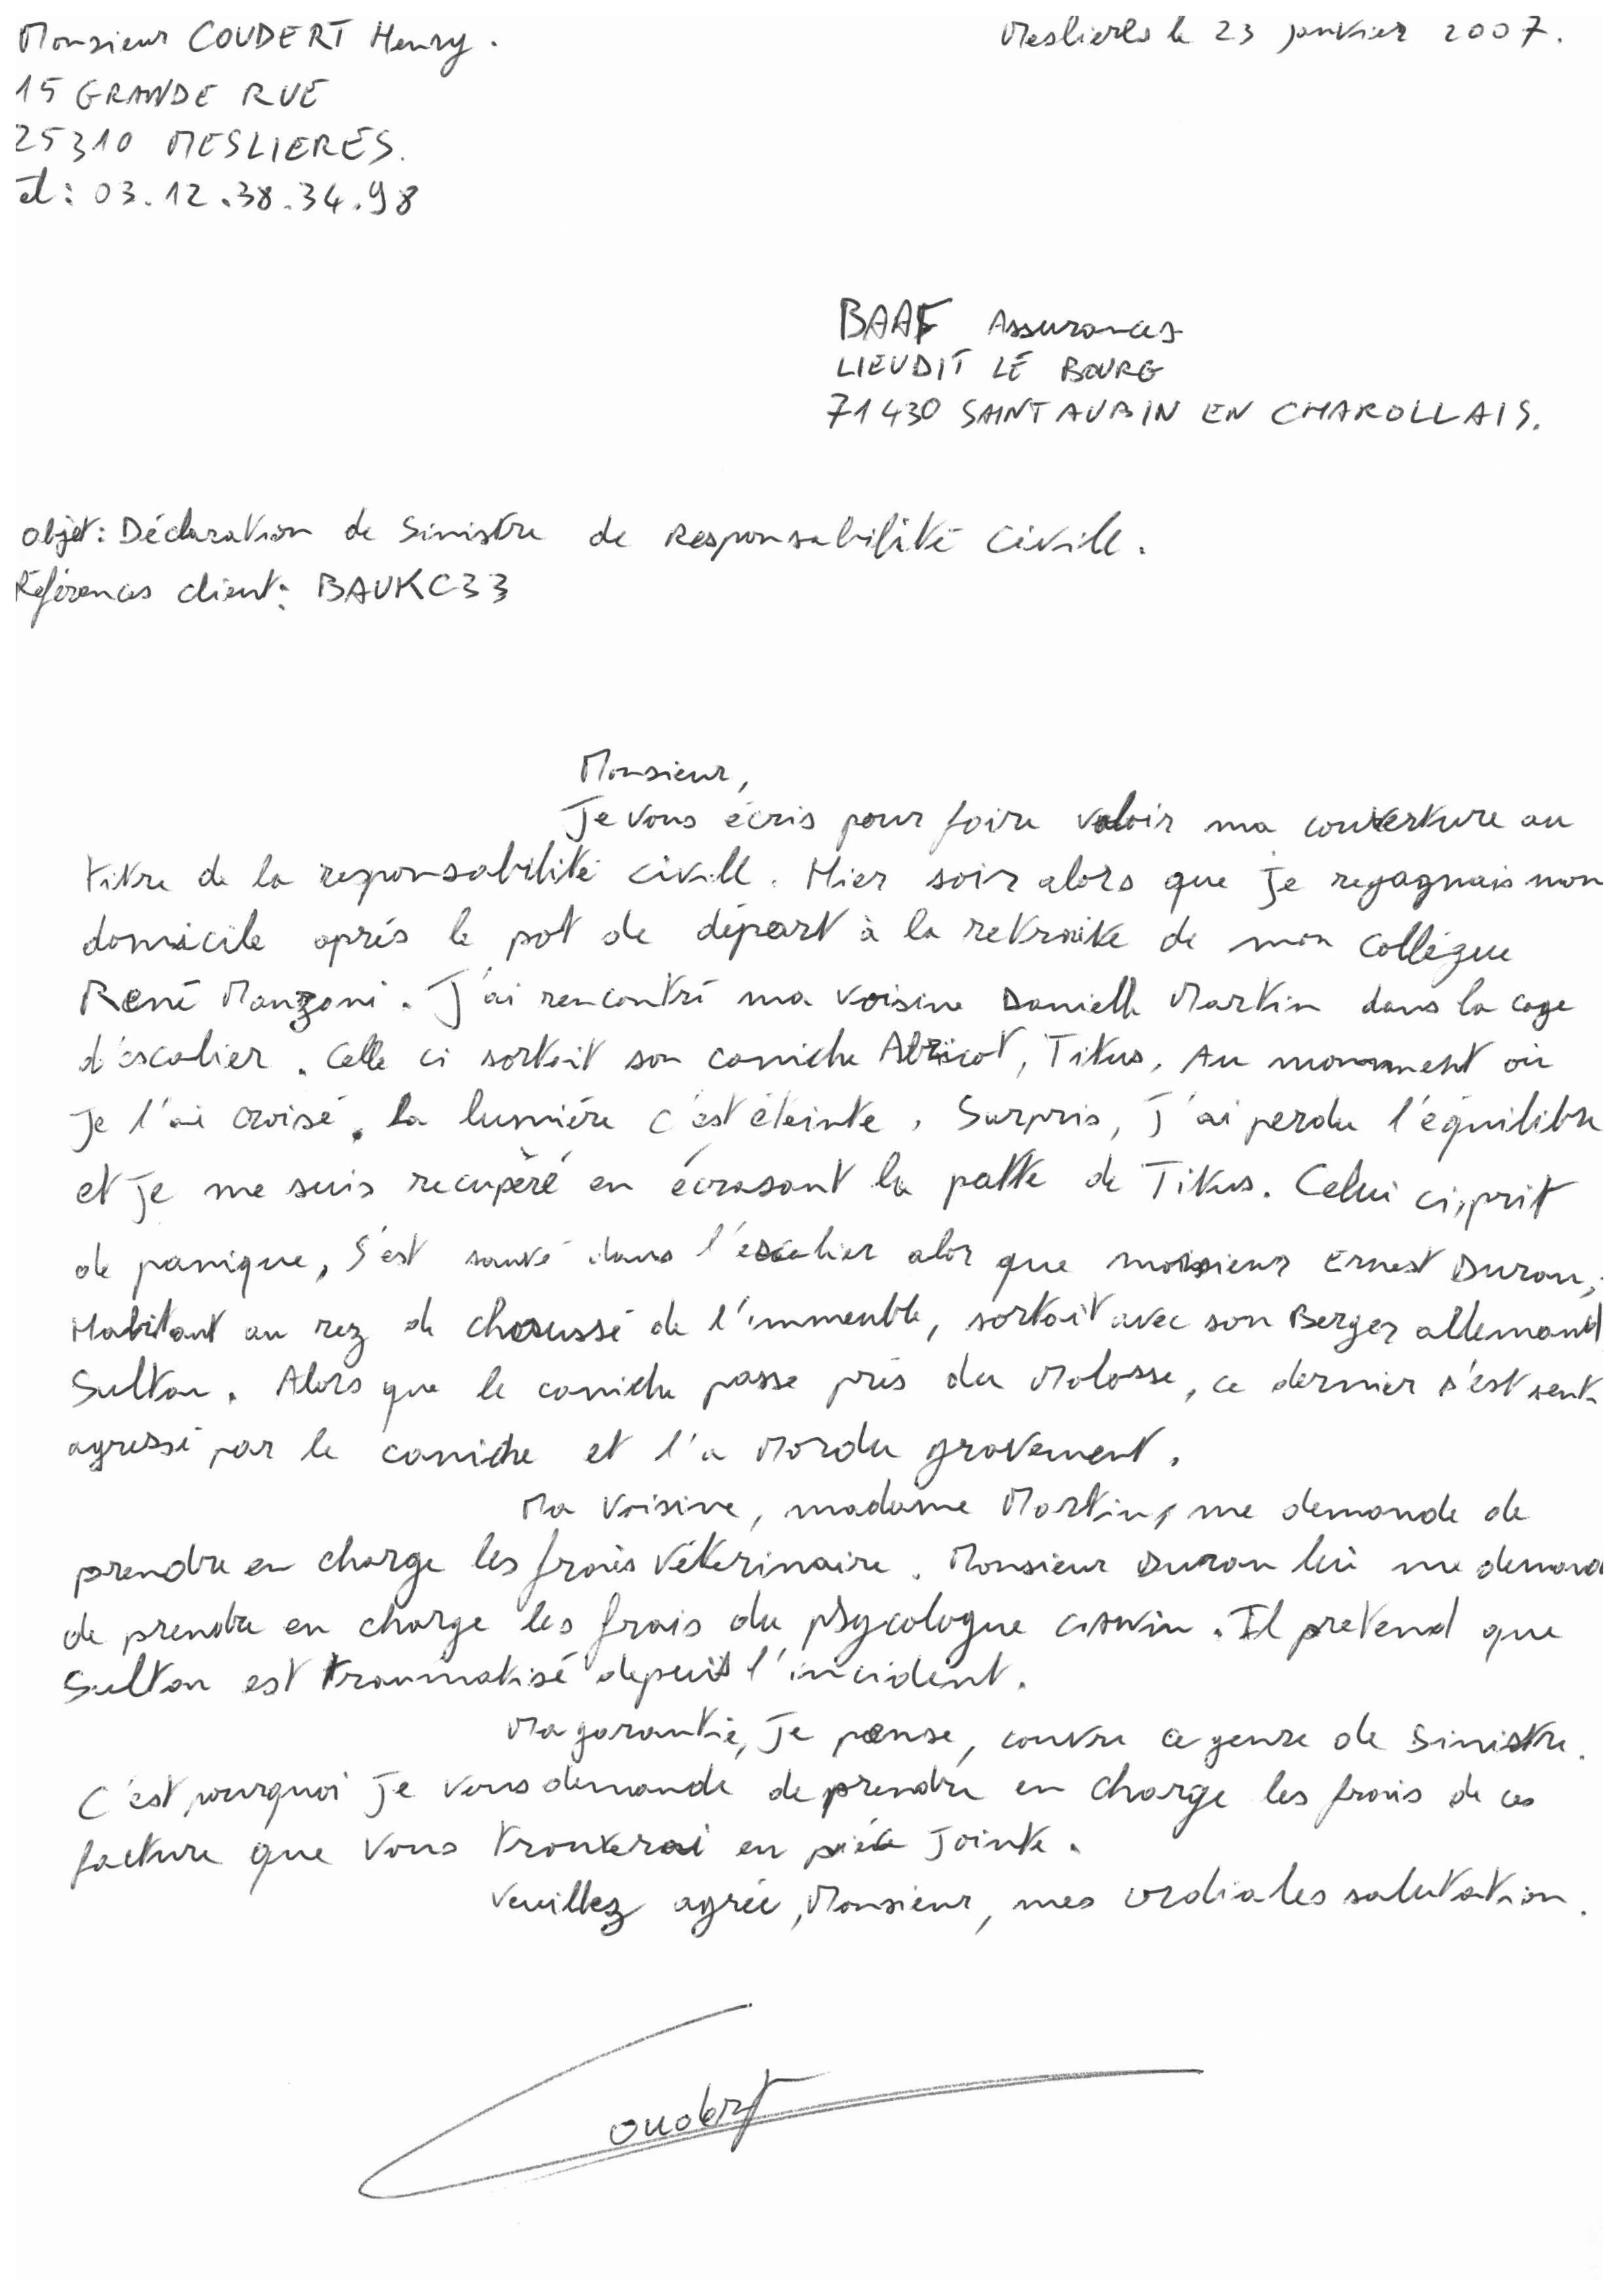 Monsieur COUDERT Henry.
Meslieres le 23 janvier 2007.
15 GRANDE RUE
25310 MESLIERES.
tel: 03.12.38.34.98
BAAF Assurances
LIEUDIT LE BOURG
71430 SAINT AUBIN EN CHAROLLAIS.
Objet: Déclaration de Sinistre de Responsabilité Civille.
Références client: BAUKC33
Monsieur,
Je vous écris pour faire valoir ma couverture au
titre de la reponsabilité civille. Hier soir alors que je regagnais mon
domicile aprés le pot de départ à la retraite de mon collégue
René Manzoni. J'ai rencontré ma voisine Danielle Martin dans la cage
d'escalier. Celle ci sortait son caniche Abricot, Titus. Au momment où
je l'ai croisé, la lumière c'est éteinte. Surpris, j'ai perdu l'équilibre
et je me suis recupéré en écrasant la patte de Titus. Celui ci, prit
de panique, s'est sauvé dans l'escalier alor que monsieur Ernest Duran,
Habitant au rez de chaussé de l'immeuble, sortait avec son Berger allemand
Sultan. Alors que le caniche passe près du Molosse, ce dernier s'est senti
agressé par le caniche et l'a mordu gravement.
Ma voisine, madame Martin, me demande de
prendre en charge les frais vétérinaire. Monsieur Duran lui me demand
de prendre en charge les frais du psycologue canin. Il pretend que
Sultan est traumatisé depuis l'incident.
Ma garantie, je pense, couvre ce genre de Sinistre.
C'est pourquoi je vous demande de prendre en charge les frais de ces
facture que vous trouverai en piéce jointe.
Veuillez agrée, Monsieur, mes cordiales salutation.
Coudert